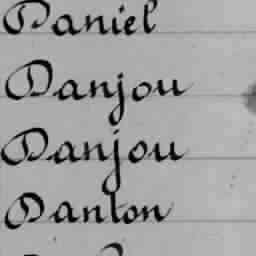 Daniel
Danjou
Danjou
Danton